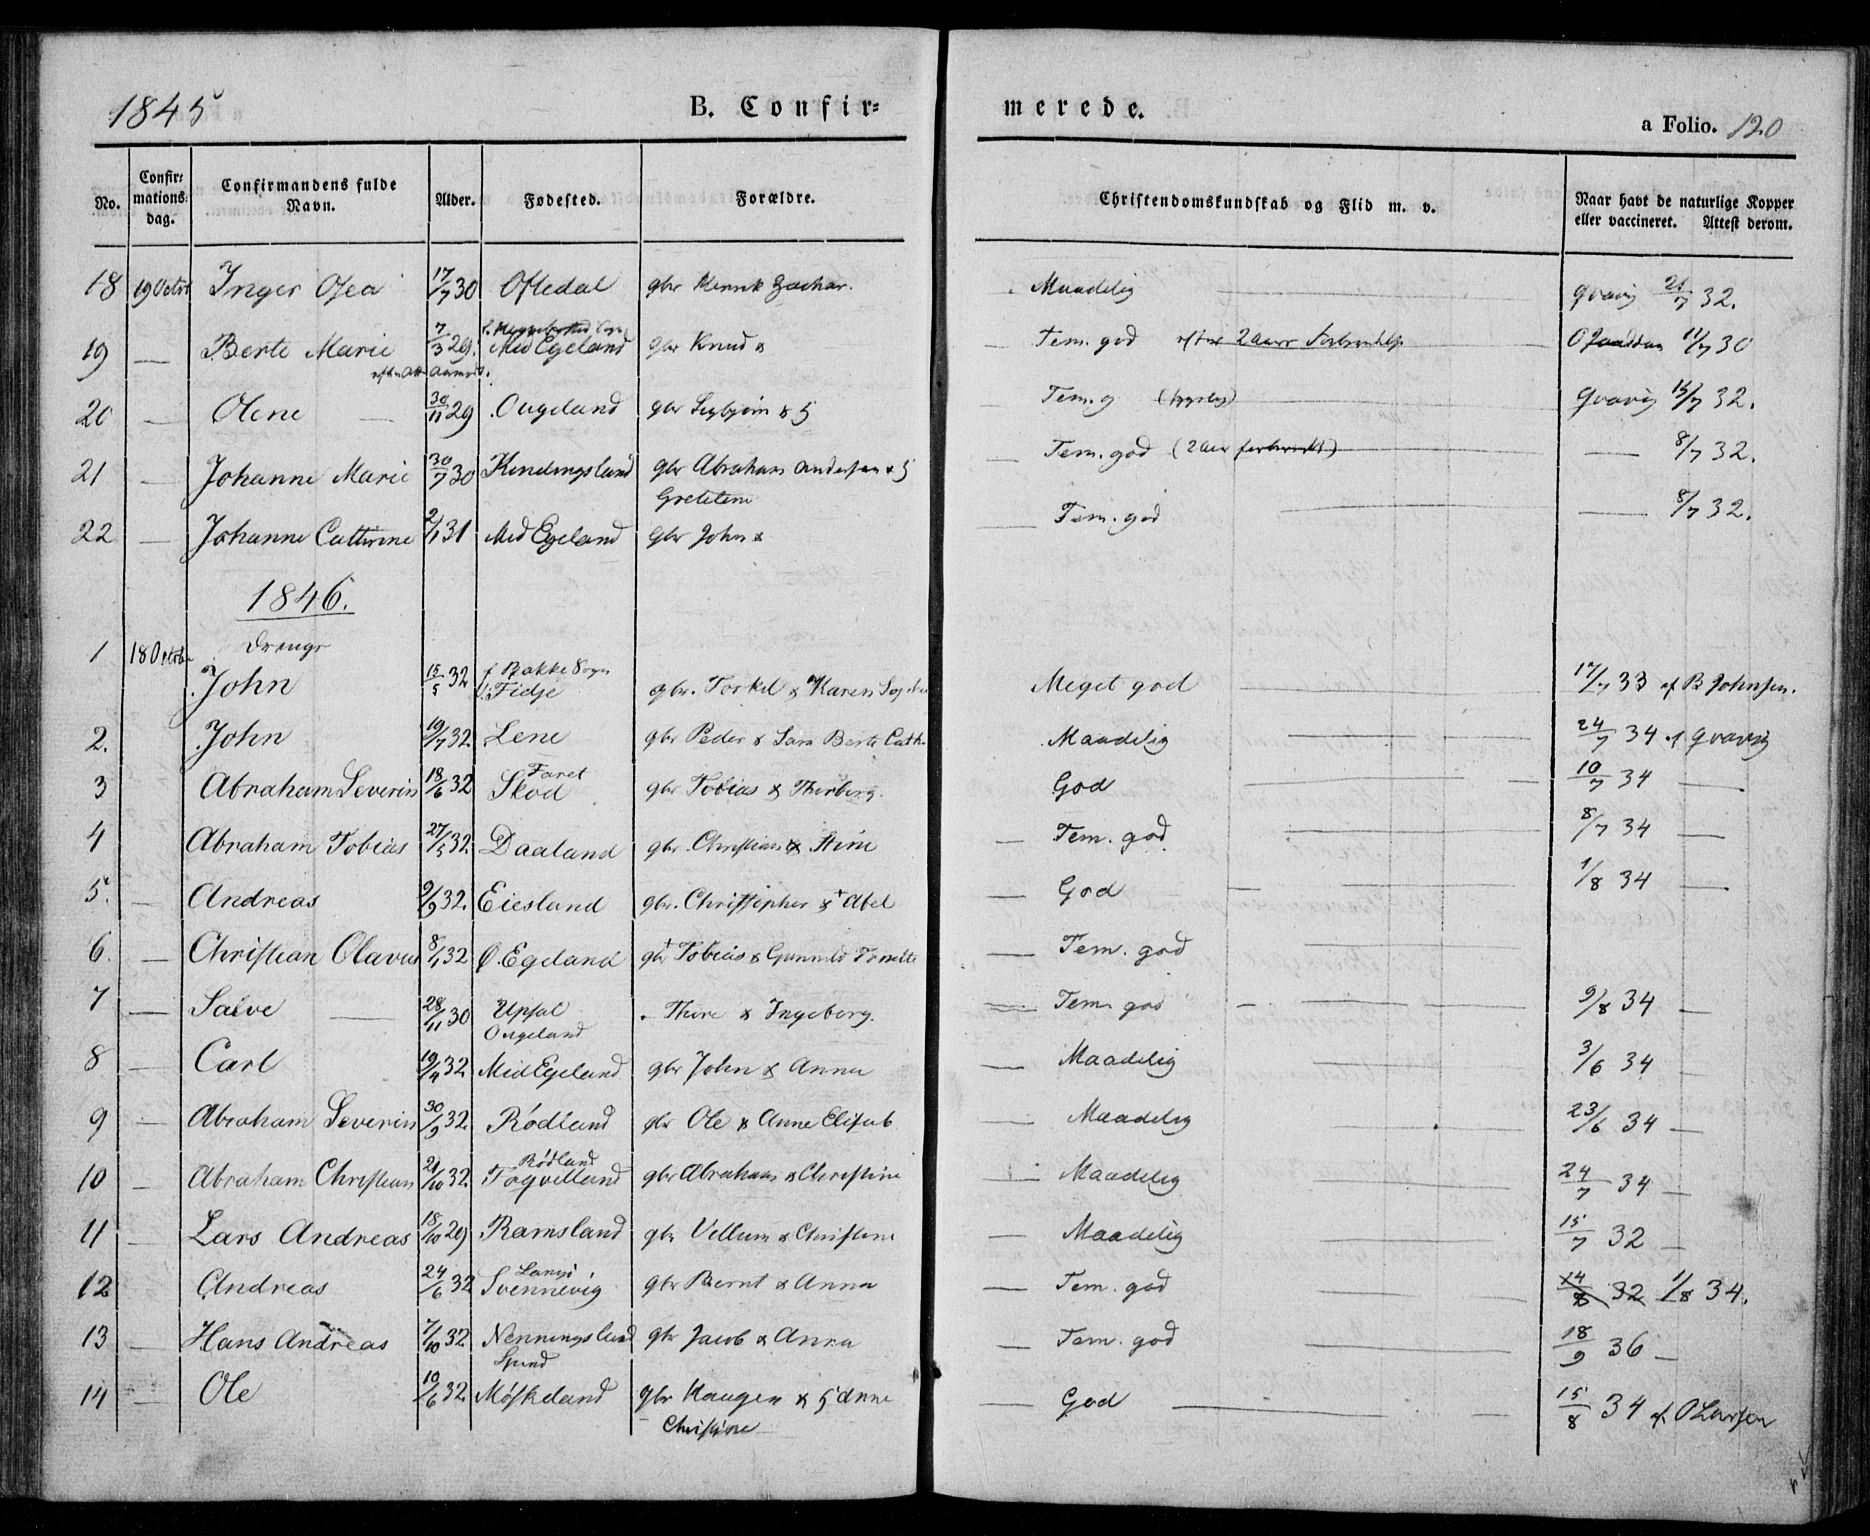 1845 B. Confir= merede. a Folio. 120
No. Confirmations=dag. Confirmandens fulde Navn. Alder. Fødested. Forældre. Christendomskundskab og Flid m. v. Naar havt de naturlige Kopper eller vaccineret. Attest derom.
18 19 Octbr Inger Osea 17/7 30 Oftedal gbr Henrik Zachar. Maadelig Qvavig 21/7 32.
19 — Berte Marie 7/3 29. Mid Egeland gbr Knud & Tem. god efter 2 Aars 11/7 30
20 — Olene — 30/11 29 Ougeland gbr & Tem. g Qvavig 15/7 32.
21 — Johanne Marie 30/7 30 Kendingsland gbr Abraham Andersen & — Tem. god (2 Aar — 8/7 32.
Gretetine
22 — Johanne Cathrine 2/1 31 Mid Egeland gbr John & — Tem. god — 8/7 32.
1846.
Drenge
1 18 Octbr John 15/5 32 f Bakke Sogn Fidje gbr. Torkel & Karen Meget god 17/7 33 af B Johnsen.
2. John 19/7 32. Lene gbr Peder & Sara Berte Cath. Maadelig 24/7 34 af Qvavig
3 Abraham Severin 18/6 32 Faret Skod gbr Tobias & Thorborg. God 10/7 34 —
4 Abraham Tobias 27/5 32. Daaland gbr. Christian & Stine — Tem. god 8/7 34 —
5. — Andreas 9/9 32. Eiesland gbr. Christopher & + Abel — God 1/8 34 —
6. — Christian Olavus 8/1 32 Ø. Egeland gbr + Tobias & Gunnild Tonette — Tem. god
7 — Salve — 28/11 30 Upsal Ougeland Thore & Ingeborg. — Tem. god 9/8 34 —
8 — Carl 19/4 32 Mid Egeland gbr John & Anna — Maadelig 3/6 34 —
9 — Abraham Severin 30/9 32. Rødland gbr Ole & Anne Elisab. — Maadelig 23/6 34 —
10 — Abraham Christian 21/10 32. Rødland gbr Abraham & Christine — Maadelig 24/7 34 —
11 — Lars Andreas 18/10 29 Ramsland gbr Vellum & Christine — Maadelig 15/7 32 —
12 — Andreas 24/6 32 Svennevig gbr Bernt & Anna — Tem. god 14/8 32 1/8 34.
13 — Hans Andreas 7/10 32 Nenningsland gbr Jacob & Anna — Tem. god 18/9 36 —
14 — Ole 10/6 32. Møskeland gbr Haagen & Anne — God 15/8 34 af O Larsen
Christine